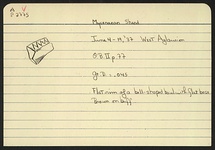 A
P 2775
Mycenaean Sherd
June 4-19, '37 West Aylounion
O.B. II p. 77
Gr. D. = .045
Flat rim of a bell-shaped bowl with flat base
Brown on buff